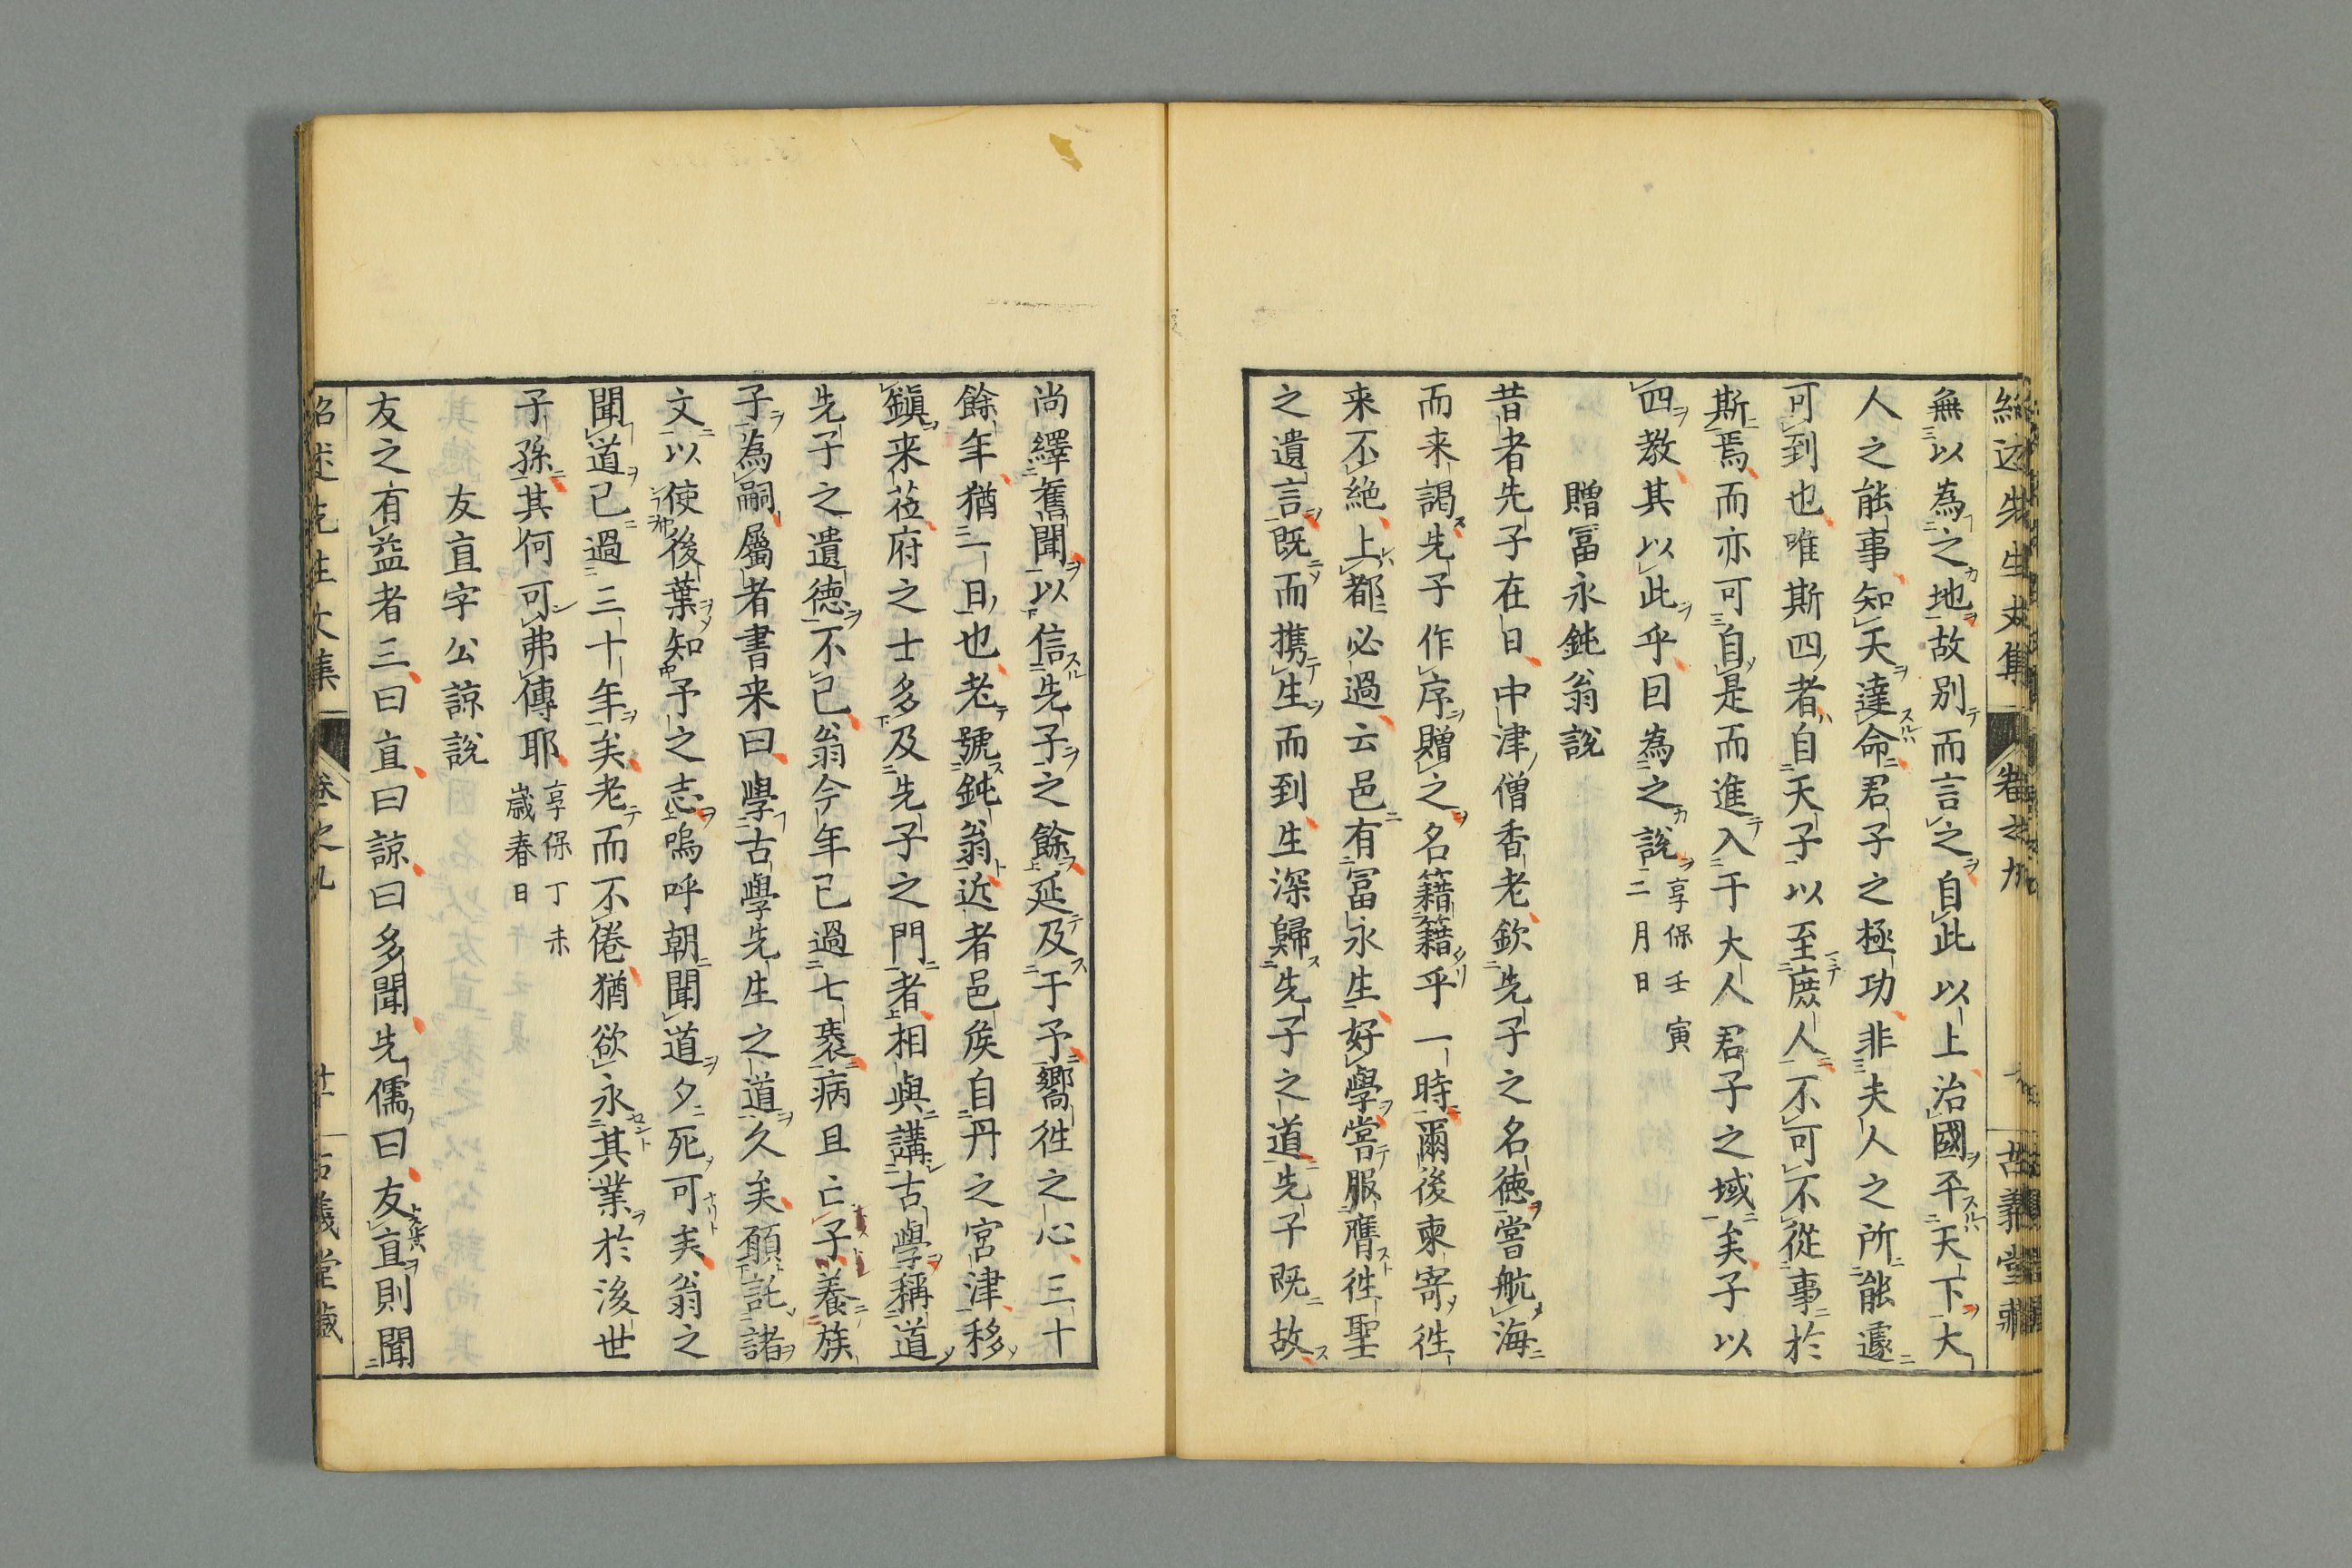 無以為之地故別而言之自此以上治國平天下大
人之能事知天達命君子之極功非夫人之所能遽
可到也唯斯四者自天子以至庶人不可不從事於
斯焉而亦可自是而進入于大人君子之域矣子以
四教其以此乎因為之說 享保壬寅
二月日
贈冨永鈍翁說
昔者先子在日中津僧香老欽先子之名德嘗航海
而来謁先子作序贈之名籍籍乎一時爾後東寄徃
来不絶上都必過云邑有冨永生好學嘗服膺徃聖
之遺言既而携生而到生深歸先子之道先子既故
尚繹舊聞以信先子之餘延及于予嚮徃之心三十
餘年猶一日也老號鈍翁近者邑矦自丹之宮津移
鎮来莅府之士多及先子之門者相與講古學稱道
先子之遺德不已翁今年已過七袠病且亡子養族
子為嗣屬者書来曰學古學先生之道久矣願託諸
文以使後葉知予之志嗚呼朝聞道夕死可矣翁之
聞道已過三十年矣老而不倦猶欲永其業於後世
子孫其何可弗傳耶 享保丁未
歳春日
友直字公諒說
友之有益者三曰直曰諒曰多聞先儒曰友直則聞
卷之九